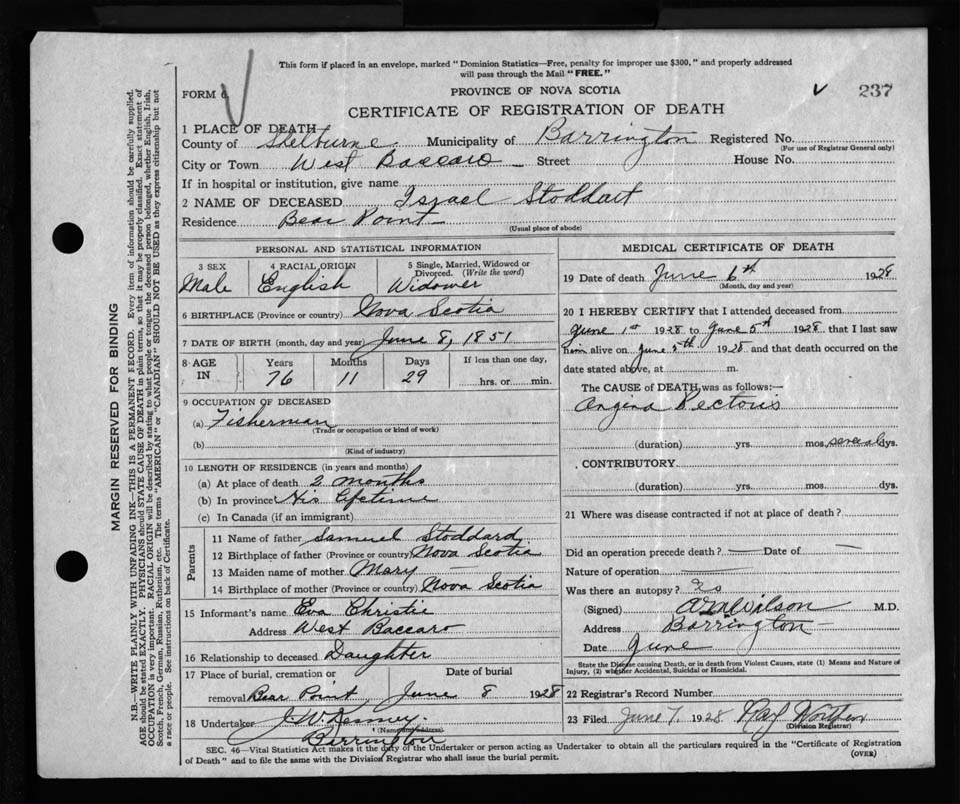 This form if placed in an envelope, marked "Dominion Statistics—Free, penalty for improper use $300," and properly addressed
will pass through the Mail "FREE."
FORM 6.
PROVINCE OF NOVA SCOTIA
237
CERTIFICATE OF REGISTRATION OF DEATH
1 PLACE OF DEATH
County of Shelburne Municipality of Barrington Registered No.
(For use of Registrar General only)
City or Town West Baccaro Street House No.
If in hospital or institution, give name
2 NAME OF DECEASED Israel Stoddart
Residence Bear Point
(Usual place of abode)
PERSONAL AND STATISTICAL INFORMATION
3 SEX 4 RACIAL ORIGIN 5 Single, Married, Widowed or Divorced. (Write the word)
Male English Widower
6 BIRTHPLACE (Province or country) Nova Scotia
7 DATE OF BIRTH (month, day and year) June 8, 1851
8 AGE IN Years Months Days If less than one day,
76 11 29 hrs. or min.
9 OCCUPATION OF DECEASED
(a) Fisherman
(Trade or occupation or kind of work)
(b)
(Kind of industry)
10 LENGTH OF RESIDENCE (in years and months)
(a) At place of death 2 months
(b) In province His lifetime
(c) In Canada (if an immigrant)
Parents
11 Name of father Samuel Stoddard
12 Birthplace of father (Province or country) Nova Scotia
13 Maiden name of mother Mary —
14 Birthplace of mother (Province or country) Nova Scotia
15 Informant's name Eva Christie
Address West Baccaro
16 Relationship to deceased Daughter
17 Place of burial, cremation or Date of burial
removal Bear Point June 8 1928
18 Undertaker J. W.
(Name and address)
Barrington
MEDICAL CERTIFICATE OF DEATH
19 Date of death June 6th 1928
(Month, day and year)
20 I HEREBY CERTIFY that I attended deceased from
June 1st 1928 to June 5th 1928 that I last saw
him alive on June 5th 1928 and that death occurred on the
date stated above, at m.
The CAUSE of DEATH was as follows:—
Angina Pectoris
(duration) yrs. mos. several dys.
CONTRIBUTORY
(duration) yrs. mos. dys.
21 Where was disease contracted if not at place of death?
Did an operation precede death? — Date of —
Nature of operation —
Was there an autopsy?
(Signed) Wilson M.D.
Address Barrington
Date June
State the Disease causing Death, or in death from Violent Causes, state (1) Means and Nature of
Injury, (2) whether Accidental, Suicidal or Homicidal.
22 Registrar's Record Number
23 Filed June 7, 1928
(Division Registrar)
SEC. 46—Vital Statistics Act makes it the duty of the Undertaker or person acting as Undertaker to obtain all the particulars required in the "Certificate of Registration
of Death" and to file the same with the Division Registrar who shall issue the burial permit.
(OVER)
MARGIN RESERVED FOR BINDING
N.B.—WRITE PLAINLY WITH UNFADING INK—THIS IS A PERMANENT RECORD. Every item of information should be carefully supplied.
AGE should be stated EXACTLY. PHYSICIANS should STATE CAUSE OF DEATH in plain terms, so that it may be properly classified. Exact statement of
OCCUPATION is very important. RACIAL ORIGIN will be described by stating to what people or tongue the deceased person belonged, whether English, Irish,
Scotch, French, German, Russian, Ruthenian, etc. The terms "AMERICAN" or "CANADIAN" SHOULD NOT BE USED as they express citizenship but not
a race or people. See instructions on back of Certificate.